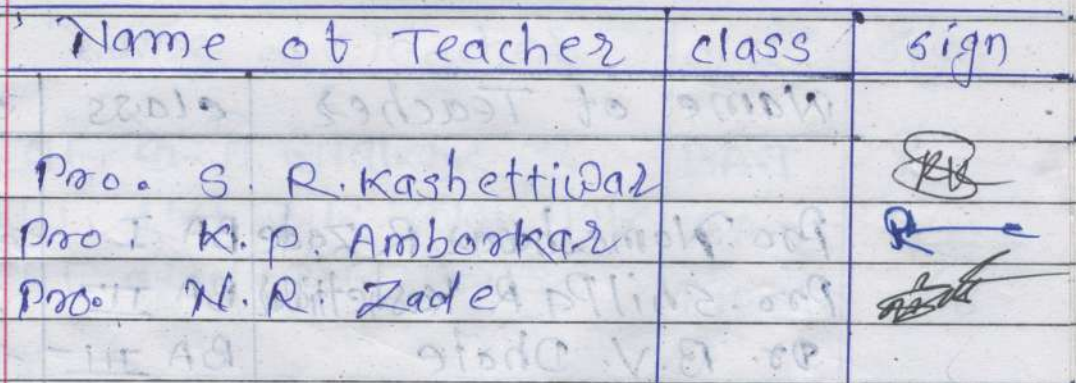 Name of Teacher class sign
Pro. S. R. Kashettiwar
Pro. K. P. Amborkar
Pro. N. R. Zade